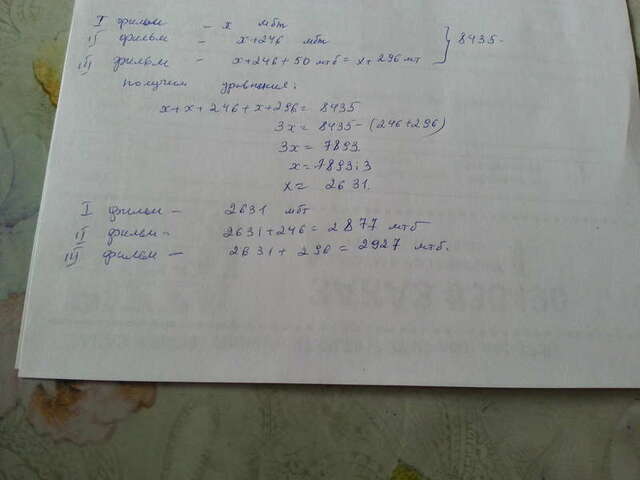 I фильм - x мбт
II фильм - x+246 мбт } 8435-
III фильм - x+246+50 мтб = x+296 мт
получим уравнение:
x+x+246+x+296= 8435
3x= 8435-(246+296)
3x= 7893.
x=7893:3
x= 2631.
I фильм - 2631 мбт
II фильм - 2631+246= 2877 мтб
III фильм - 2631+ 296 = 2927 мтб.